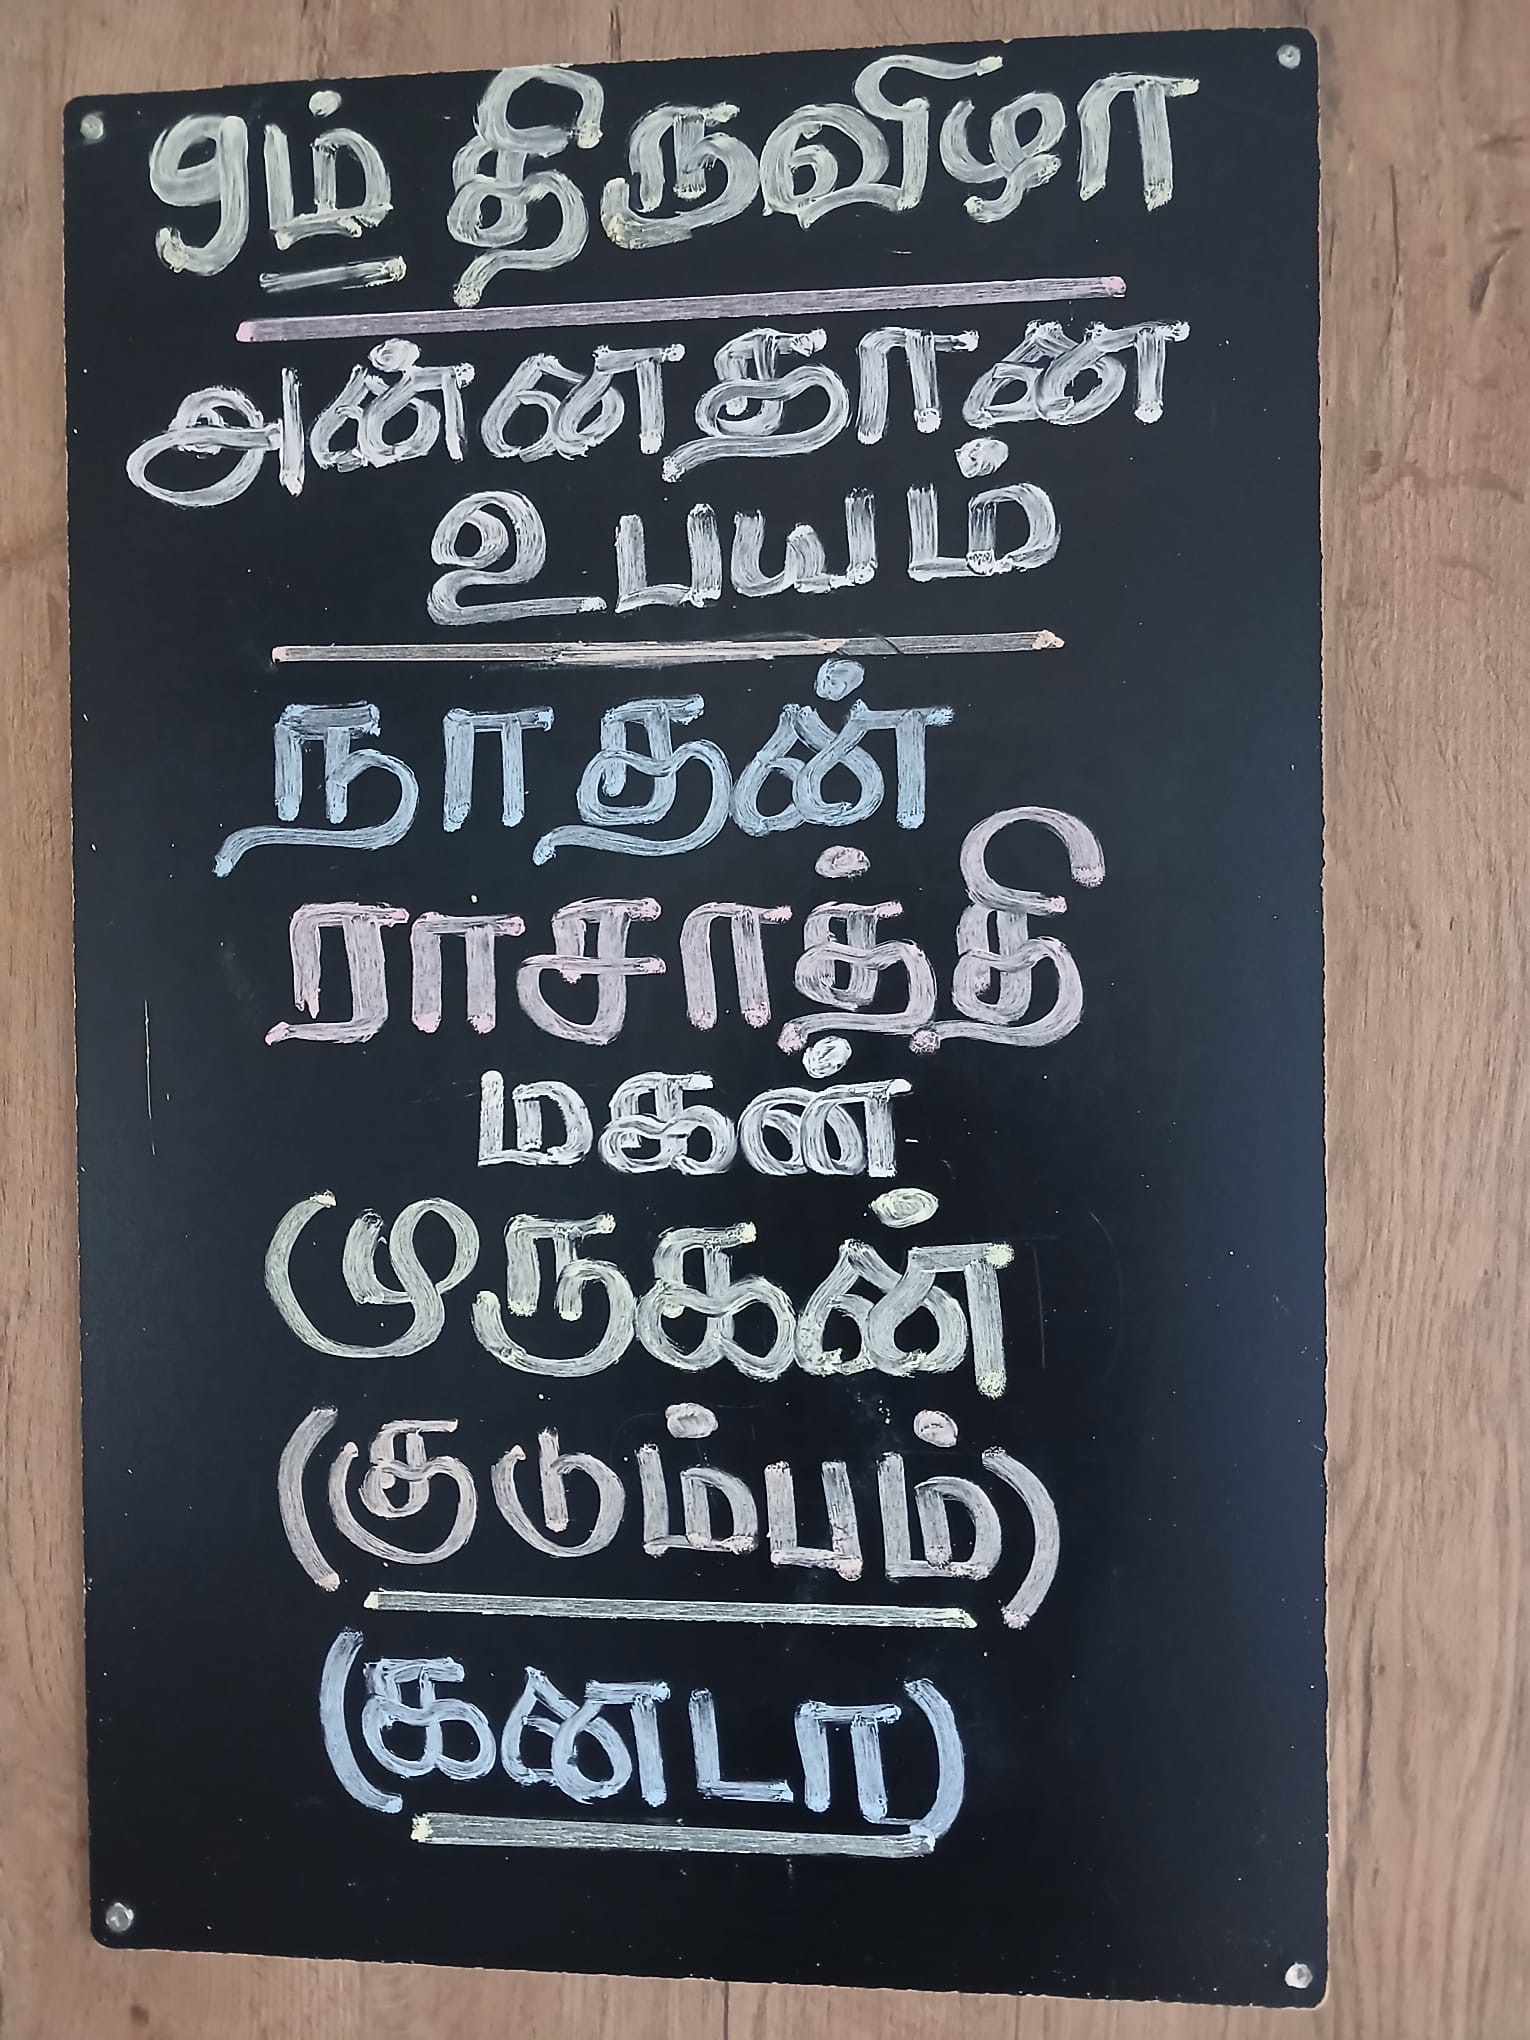 9ம் திருவிழா
அன்னதான
உபயம்
நாதன்
ராசாத்தி
மகன்
முருகன்
(குடும்பம்)
(கனடா)